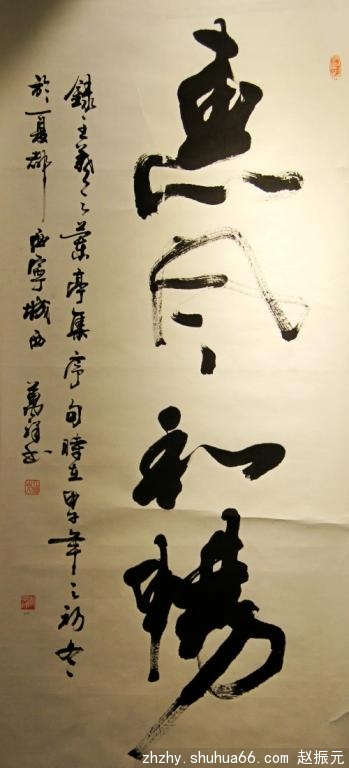 惠风和暢
録王羲之蘭亭集序句時在甲午年之初冬
於夏都西寧城西 萬祥书
zhzhy.shuhua66.com 赵振元